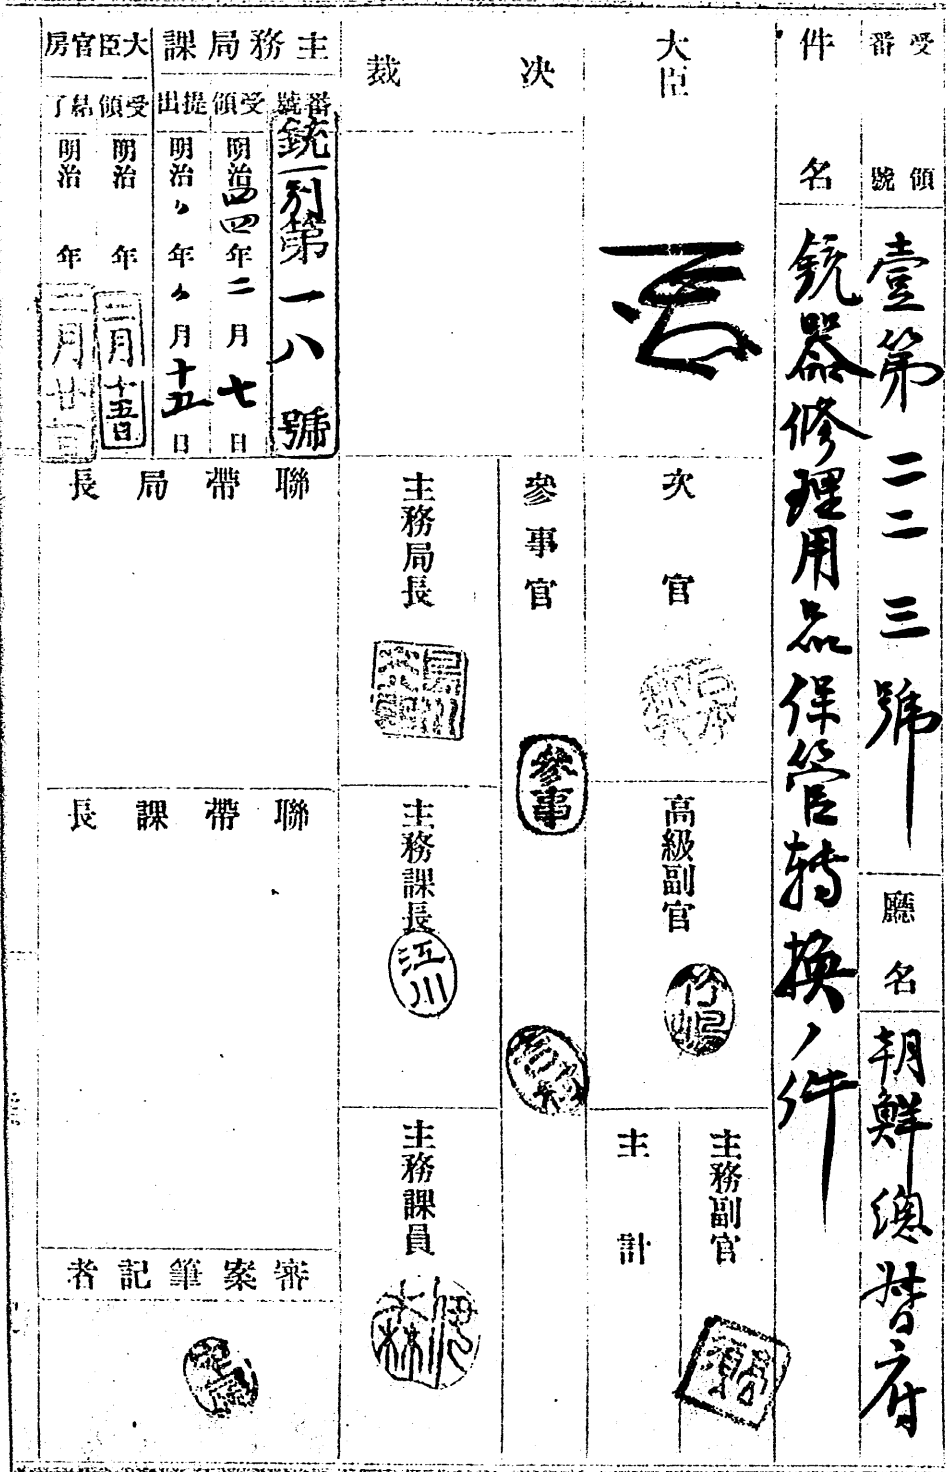 受領番號
壹第二二三號
廳名
朝鮮總督府
件名
銃器修理用品保管轉換ノ件
大臣
決裁
次官
高級副官
竹嶋
主務副官
主計
參事官
參事
主務局長
主務課長
江川
主務課員
主務局課
番號
銃一別第一八號
受領
明治四四年二月七日
提出
明治〃年〃月十五日
大臣官房
受領
明治 年
二月十五日
結了
明治 年
二月廿一日
聯帶局長
聯帶課長
審案筆記者